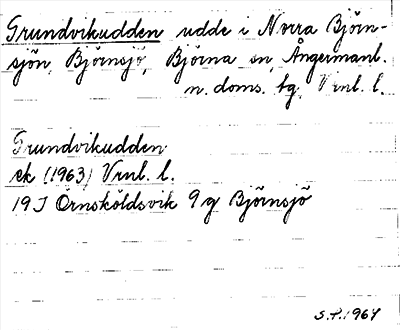 Grundvikudden udde i Norra Björn-
sjön, Björnsjö, Björna sn, Ångermanl.
n. doms. tg, Vrnl. l.
Grundvikudden
ek (1963) Vrnl. l.
19 J Örnsköldsvik 9 g Björnsjö
S.P. 1967